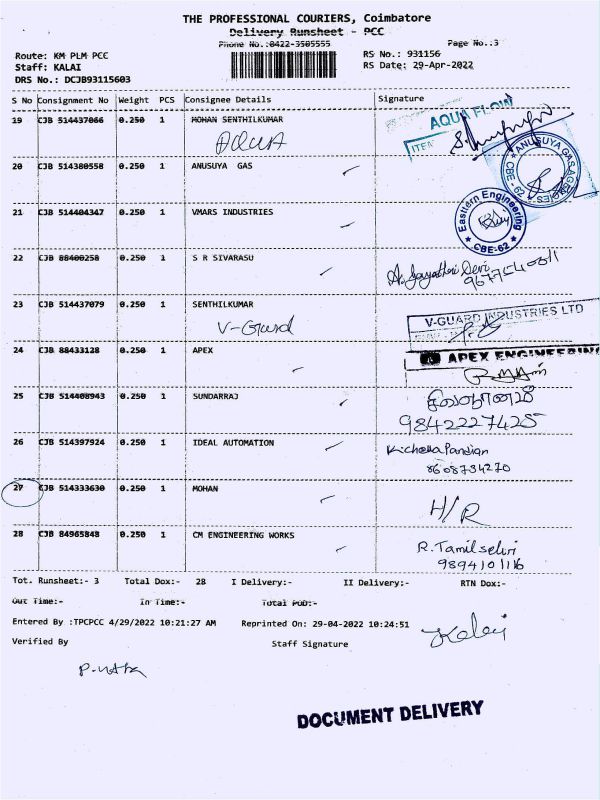 THE PROFESSIONAL COURIERS, Coimbatore
Delivery Runsheet - PCC
Phone No.:0422-3505555 Page No.:3
Route: KM PLM PCC RS No.: 931156
Staff: KALAI RS Date: 29-Apr-2022
DRS No.: DCJB93115603
S No Consignment No Weight PCS Consignee Details Signature
19 CJB 514437066 0.250 1 MOHAN SENTHILKUMAR
AQUA
AQUA FLOW
ITEM
20 CJB 514380558 0.250 1 ANUSUYA GAS
ANUSUYA GAS AGENCIES
CBE - 62
21 CJB 514404347 0.250 1 VMARS INDUSTRIES
Easttern Engineering
CBE-62
22 CJB 88400258 0.250 1 S R SIVARASU
A. Gayathri Devi
23 CJB 514437079 0.250 1 SENTHILKUMAR
V-Guard
V-GUARD INDUSTRIES LTD
24 CJB 88433128 0.250 1 APEX
APEX ENGINEERING
25 CJB 514408943 0.250 1 SUNDARRAJ
9842227425
26 CJB 514397924 0.250 1 IDEAL AUTOMATION
KichellaPandian
8608734270
27 CJB 514333630 0.250 1 MOHAN
H/R
28 CJB 84965848 0.250 1 CM ENGINEERING WORKS
R. Tamilselvi
9894101116
Tot. Runsheet:- 3 Total Dox:- 28 I Delivery:- II Delivery:- RTN Dox:-
Out Time:- In Time:- Total POD:-
Entered By :TPCPCC 4/29/2022 10:21:27 AM Reprinted On: 29-04-2022 10:24:51
Kalai
Verified By Staff Signature
DOCUMENT DELIVERY